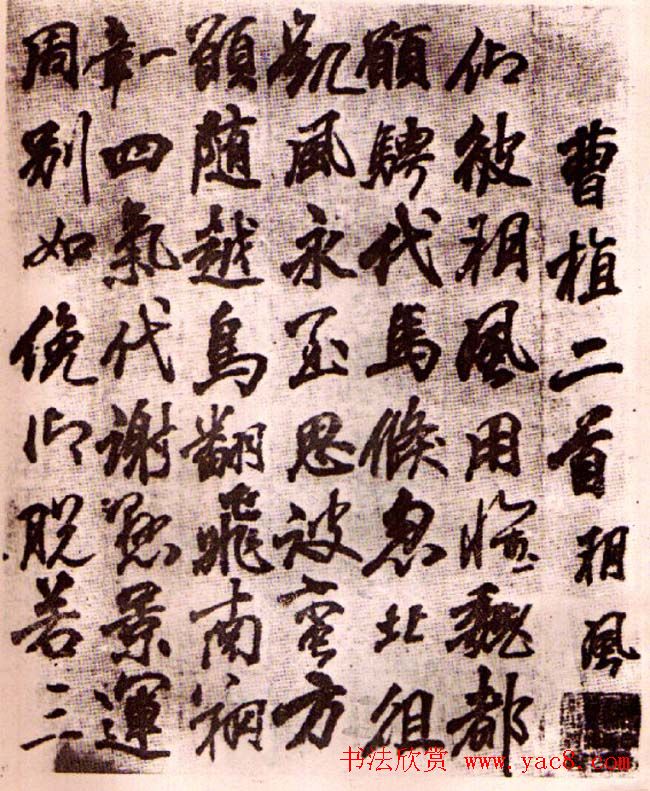 曹植二首 朔風
仰彼朔風用懷魏都
願騁代馬倏忽北徂
凱風永至思彼蛮方
願随越鳥翻飛南翔
一章四氣代謝懸景運
周别如俛仰脱若三
书法欣赏 www.yac8.com